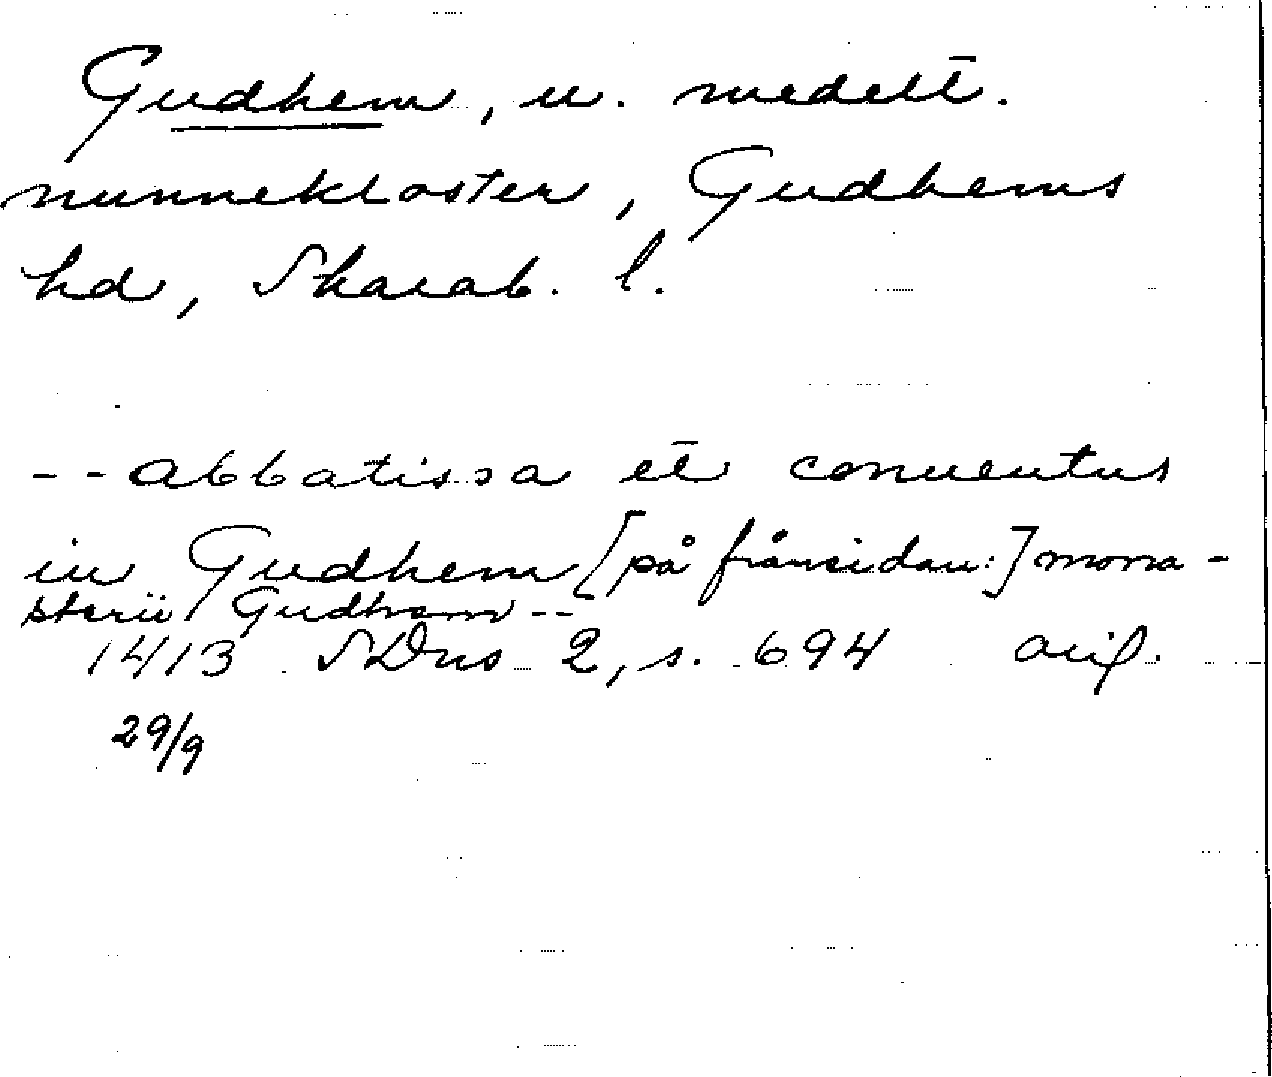 Gudhem, u. medelt.
nunnekloster, Gudhems
hd, Skarab. l.
-- abbatissa et conuentus
in Gudhem [på frånsidan:] mona-
sterii Gudhem --
1413 SDns 2, s. 694 avs.
29/9